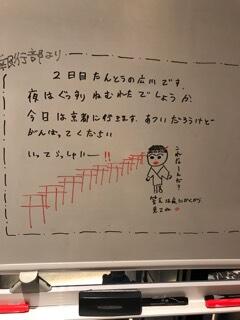 旅行部より
2日目たんとうの広川です。
夜はぐっすりねむれたでしょうか。
今日は京都に行きます。あついだろうけど
がんばってください
いってらっしゃいー!!
これなーんだ?
答えは夜にかくから
見てね